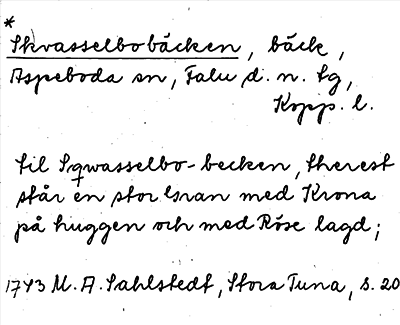 *
Skvasselbobäcken, bäck,
Aspeboda sn, Falu d. n. tg,
Kopp. l.
til Sqwasselbo-becken, therest
står en stor Gran med Krona
på huggen och med Röse lagd;
1743 M. A. Sahlstedt, Stora Tuna, s. 20